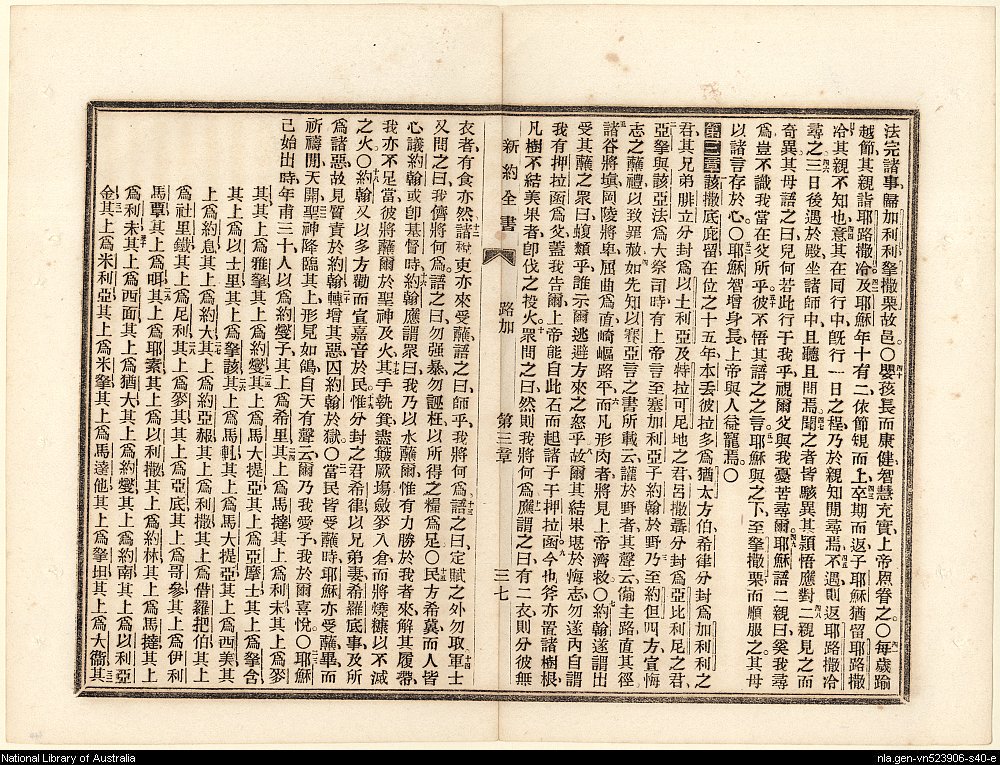 法完諸事歸加利利拏撒䦷故邑○嬰孩長而康健智慧充實上帝恩眷之○每歲踰
越節其親詣耶路撒冷及耶穌年十有二依節規而上卒期而返子耶穌猶留耶路撒
冷其親不知也意其在同行中旣行一日之程乃於親知間尋焉不遇則返耶路撒冷
尋之三日後遇於殿坐諸師中且聽且問焉聞之者皆駭異其頴悟應對二親見之而
奇異其母語之曰兒何若此行于我乎視爾父與我憂苦尋爾耶穌語二親曰奚我尋
爲豈不識我當在父所乎彼不悟其語之之言耶穌與之下至拏撒䦷而順服之其母
以諸言存於心○耶穌智增身長上帝與人益寵焉○
第三章該撒底庇留在位之十五年本丟彼拉多爲猶太方伯希律分封爲加利利之
君其兄弟腓立分封爲以士利亞及特拉可尼地之君呂撒聶分封爲亞比利尼之君
亞拏與該亞法爲大祭司時有上帝言至塞加利亞子約翰於野乃至約但四方宣悔
志之蘸禮以致罪赦如先知以賽亞言之書所載云讙於野者其聲云備主路直其徑
諸谷將塡岡陵將卑屈曲爲直崎嶇路平而凡形肉者將見上帝濟救○約翰遂謂出
受其蘸之衆曰蝮類乎誰示爾逃避方來之怒乎故爾其結果堪於悔志勿遂內自謂
我有押拉函爲父蓋我告爾上帝能自此石而起諸子于押拉函今也斧亦置諸樹根
凡樹不結美果者卽伐之投火○衆問之曰然則我將何爲應謂之曰有二衣則分彼無
新約全書 路加 第三章 三七
衣者有食亦然諸稅吏亦來受蘸語之曰師乎我將何爲語之曰定賦之外勿取軍士
又問之曰我儕將何爲語之曰勿强暴勿誣枉以所得之糧爲足○民方希冀而人皆
心議約翰或卽基督時約翰應謂衆曰我乃以水蘸爾惟有力勝於我者來解其履帶
我亦不足當彼將蘸爾於聖神及火其手執箕盡簸厥塲斂麥入倉而將燒糠以不滅
之火○約翰又以多方勸而宣嘉音於民惟分封之君希律以兄弟妻希羅底事及所
爲諸惡故見質責於約翰轉增其惡囚約翰於獄○當民皆受蘸時耶穌亦受蘸畢而
祈禱間天開聖神降臨其上形見如鴿自天有聲云爾乃我愛子我於爾喜悅○耶穌
己始出時年甫三十人以爲約㸐子其上爲希里其上爲馬撻其上爲利未其上爲麥
其其上爲雅拏其上爲約㸐其上爲馬大提亞其上爲亞摩士其上爲拏含
其上爲以士里其上爲拏該其上爲馬軋其上爲馬大提亞其上爲西美其
上爲約息其上爲約大其上爲約亞赧其上爲利撒其上爲借羅把伯其上
爲社里鐵其上爲尼利其上爲麥其其上爲亞底其上爲哥參其上爲伊利
馬覃其上爲咡其上爲耶素其上爲以利撒其上爲約林其上爲馬撻其上
爲利未其上爲西面其上爲猶大其上爲約㸐其上爲約南其上爲以利亞
金其上爲米利亞其上爲米拏其上爲馬達他其上爲拏坦其上爲大衞其
National Library of Australia
nla.gen-vn523906-s40-e